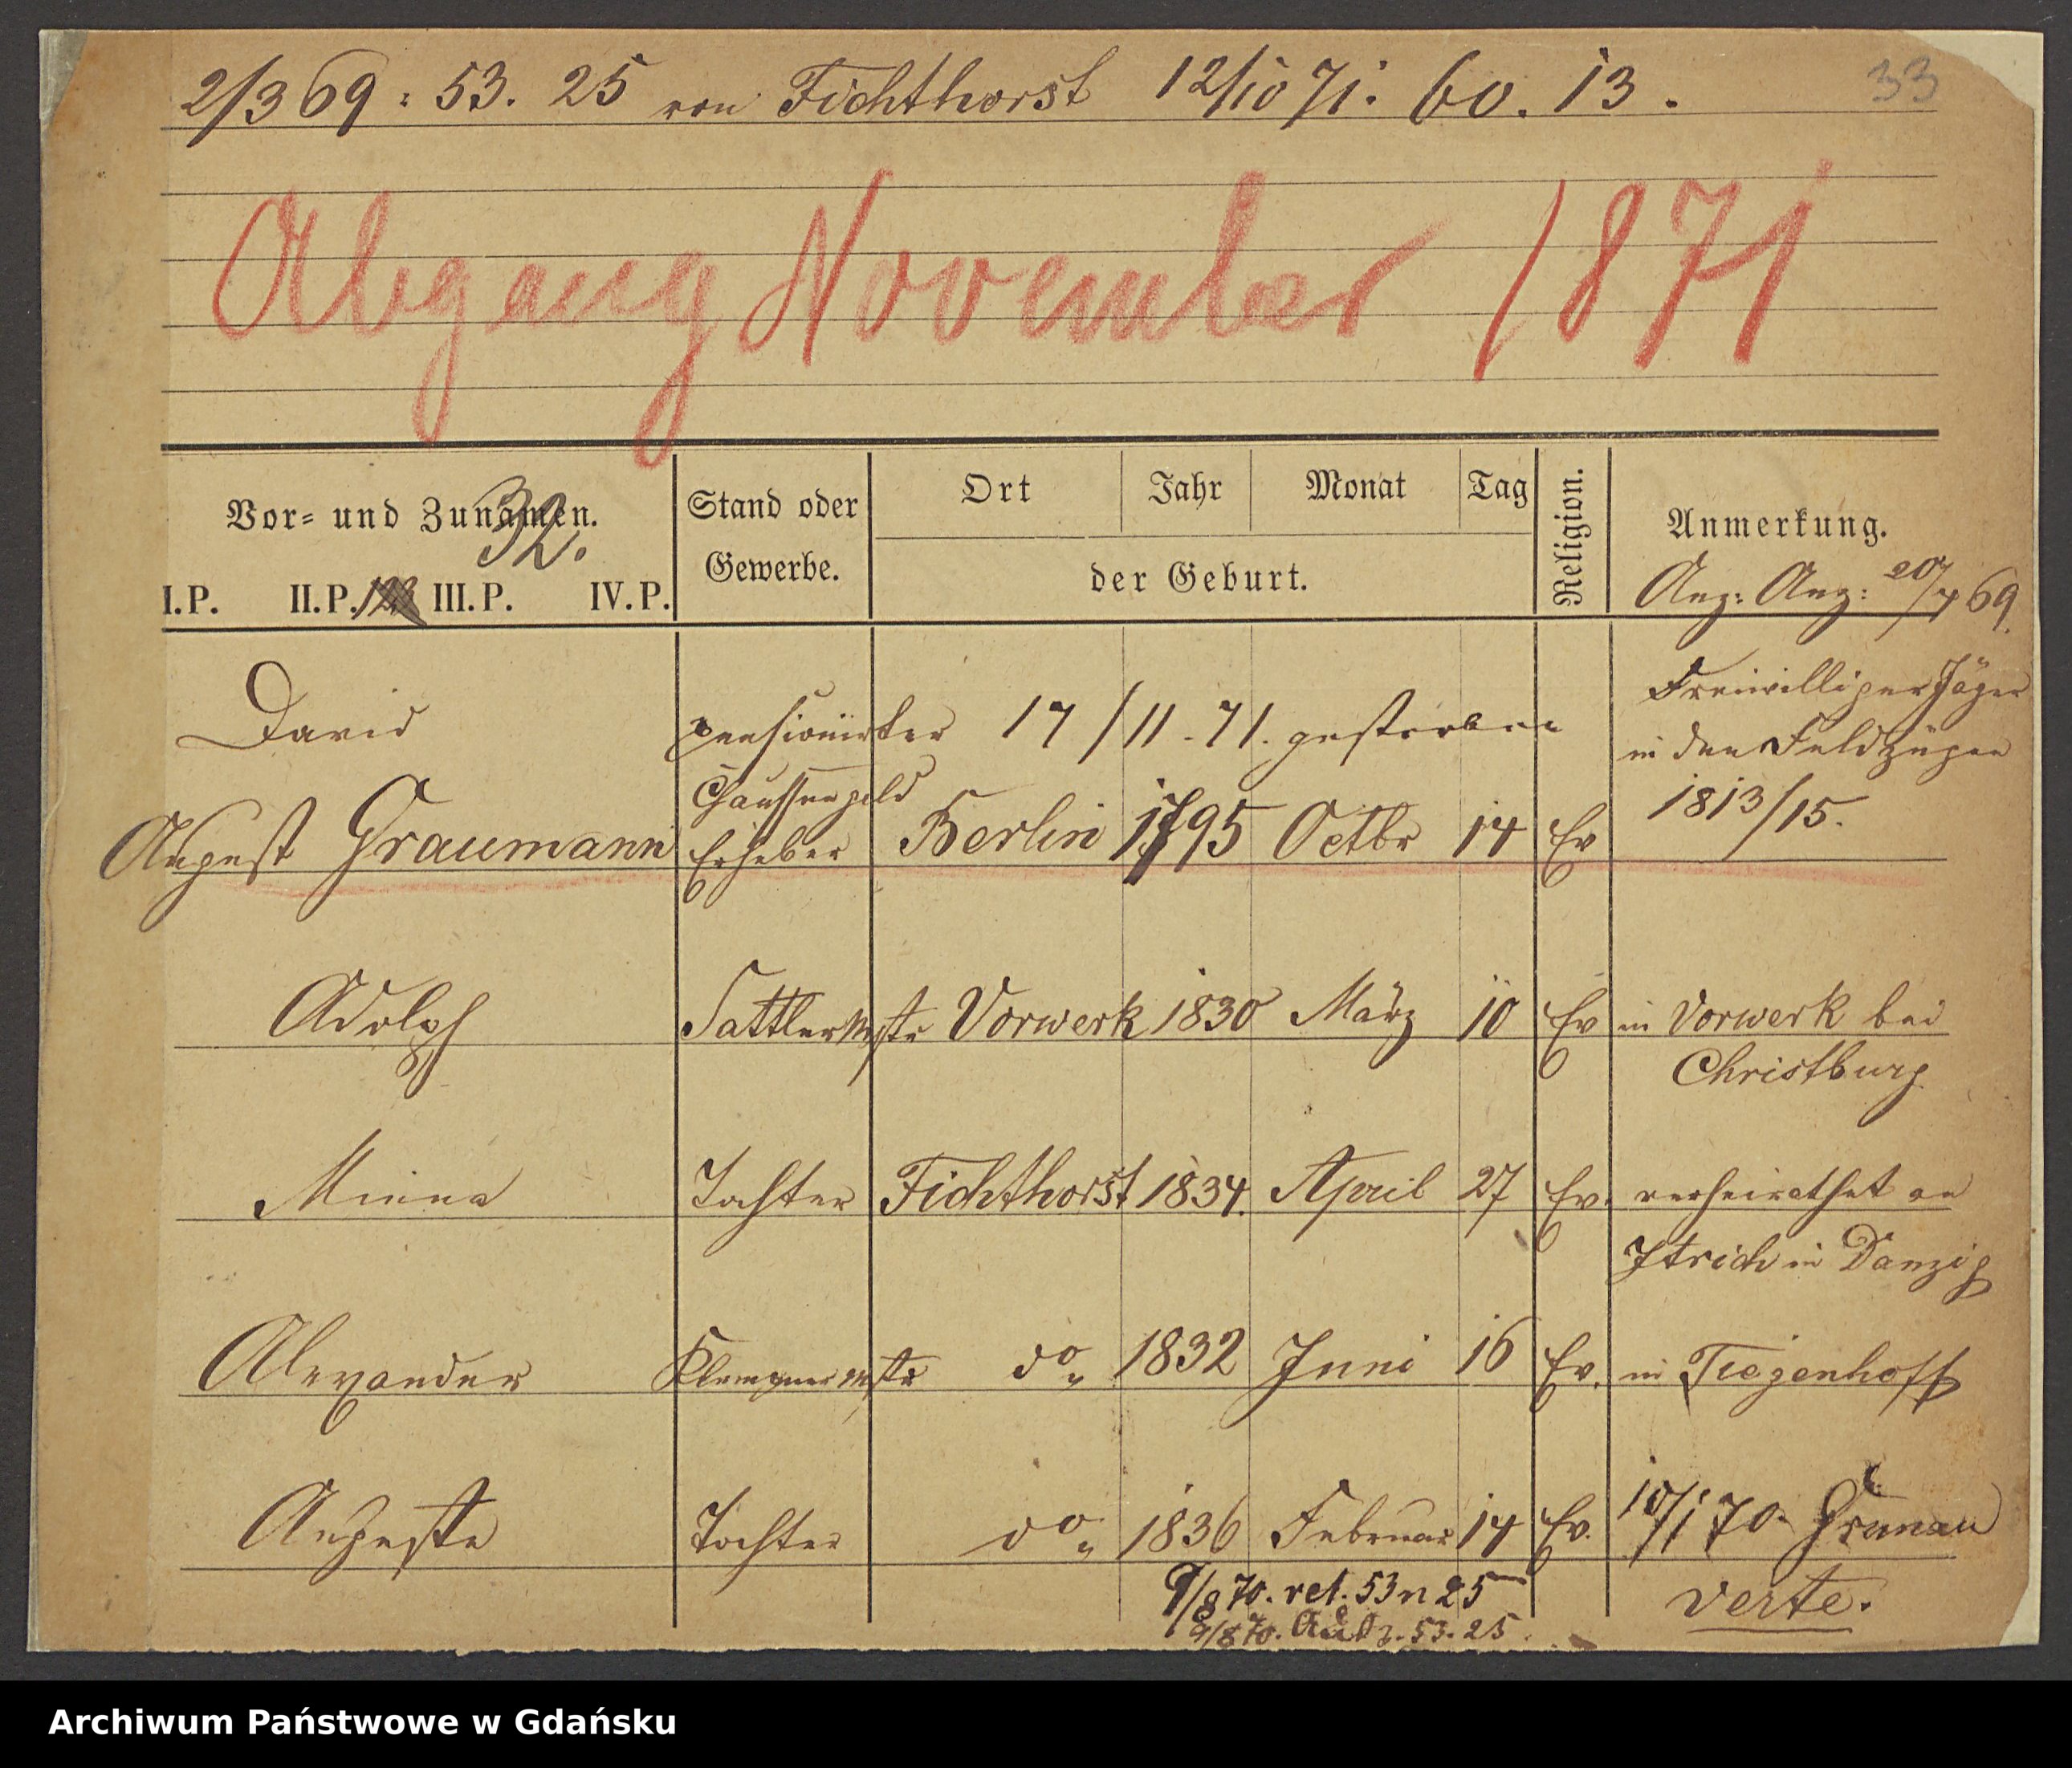 2/3 69 : 53. 25 von Fichthorst 12/10 71. 60. 13.
33
Abgang November 1871
Vor- und Zunamen.
32.
I. P. II. P. III. P. IV. P.
Stand oder Gewerbe.
Ort Jahr Monat Tag
der Geburt.
Religion.
Anmerkung.
Anz: Aug: 20/7 69.
David pensionirter 17/11. 71. gestorben Freiwilliger Jäger
in den Feldzügen
Chausseegeld 1813/15.
August Graumann Erheber Berlin 1795 Octbr 14 Ev
Adolph Sattler Mstr Vorwerk 1830 März 10 Ev in Vorwerk bei
Christburg
Minna Tochter Fichthorst 1834. April 27 Ev. verheirathet an
Itrich in Danzig
Alexander Klempner Mstr do 1832 Juni 16 Ev. in Tiegenhoff
Auguste Tochter do 1836 Februar 14 Ev. 10/1 70. Grunau
9/8 70. ret. 53 n 25
verte.
9/8 70. 53. 25.
Archiwum Państwowe w Gdańsku